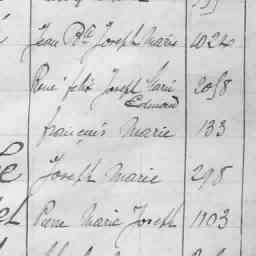 Jean Bte Joseph Marie 1024
René felix Joseph Marie 2058
Edmond
françois Marie 133
Joseph Marie 298
Pierre Marie Joseph 1103